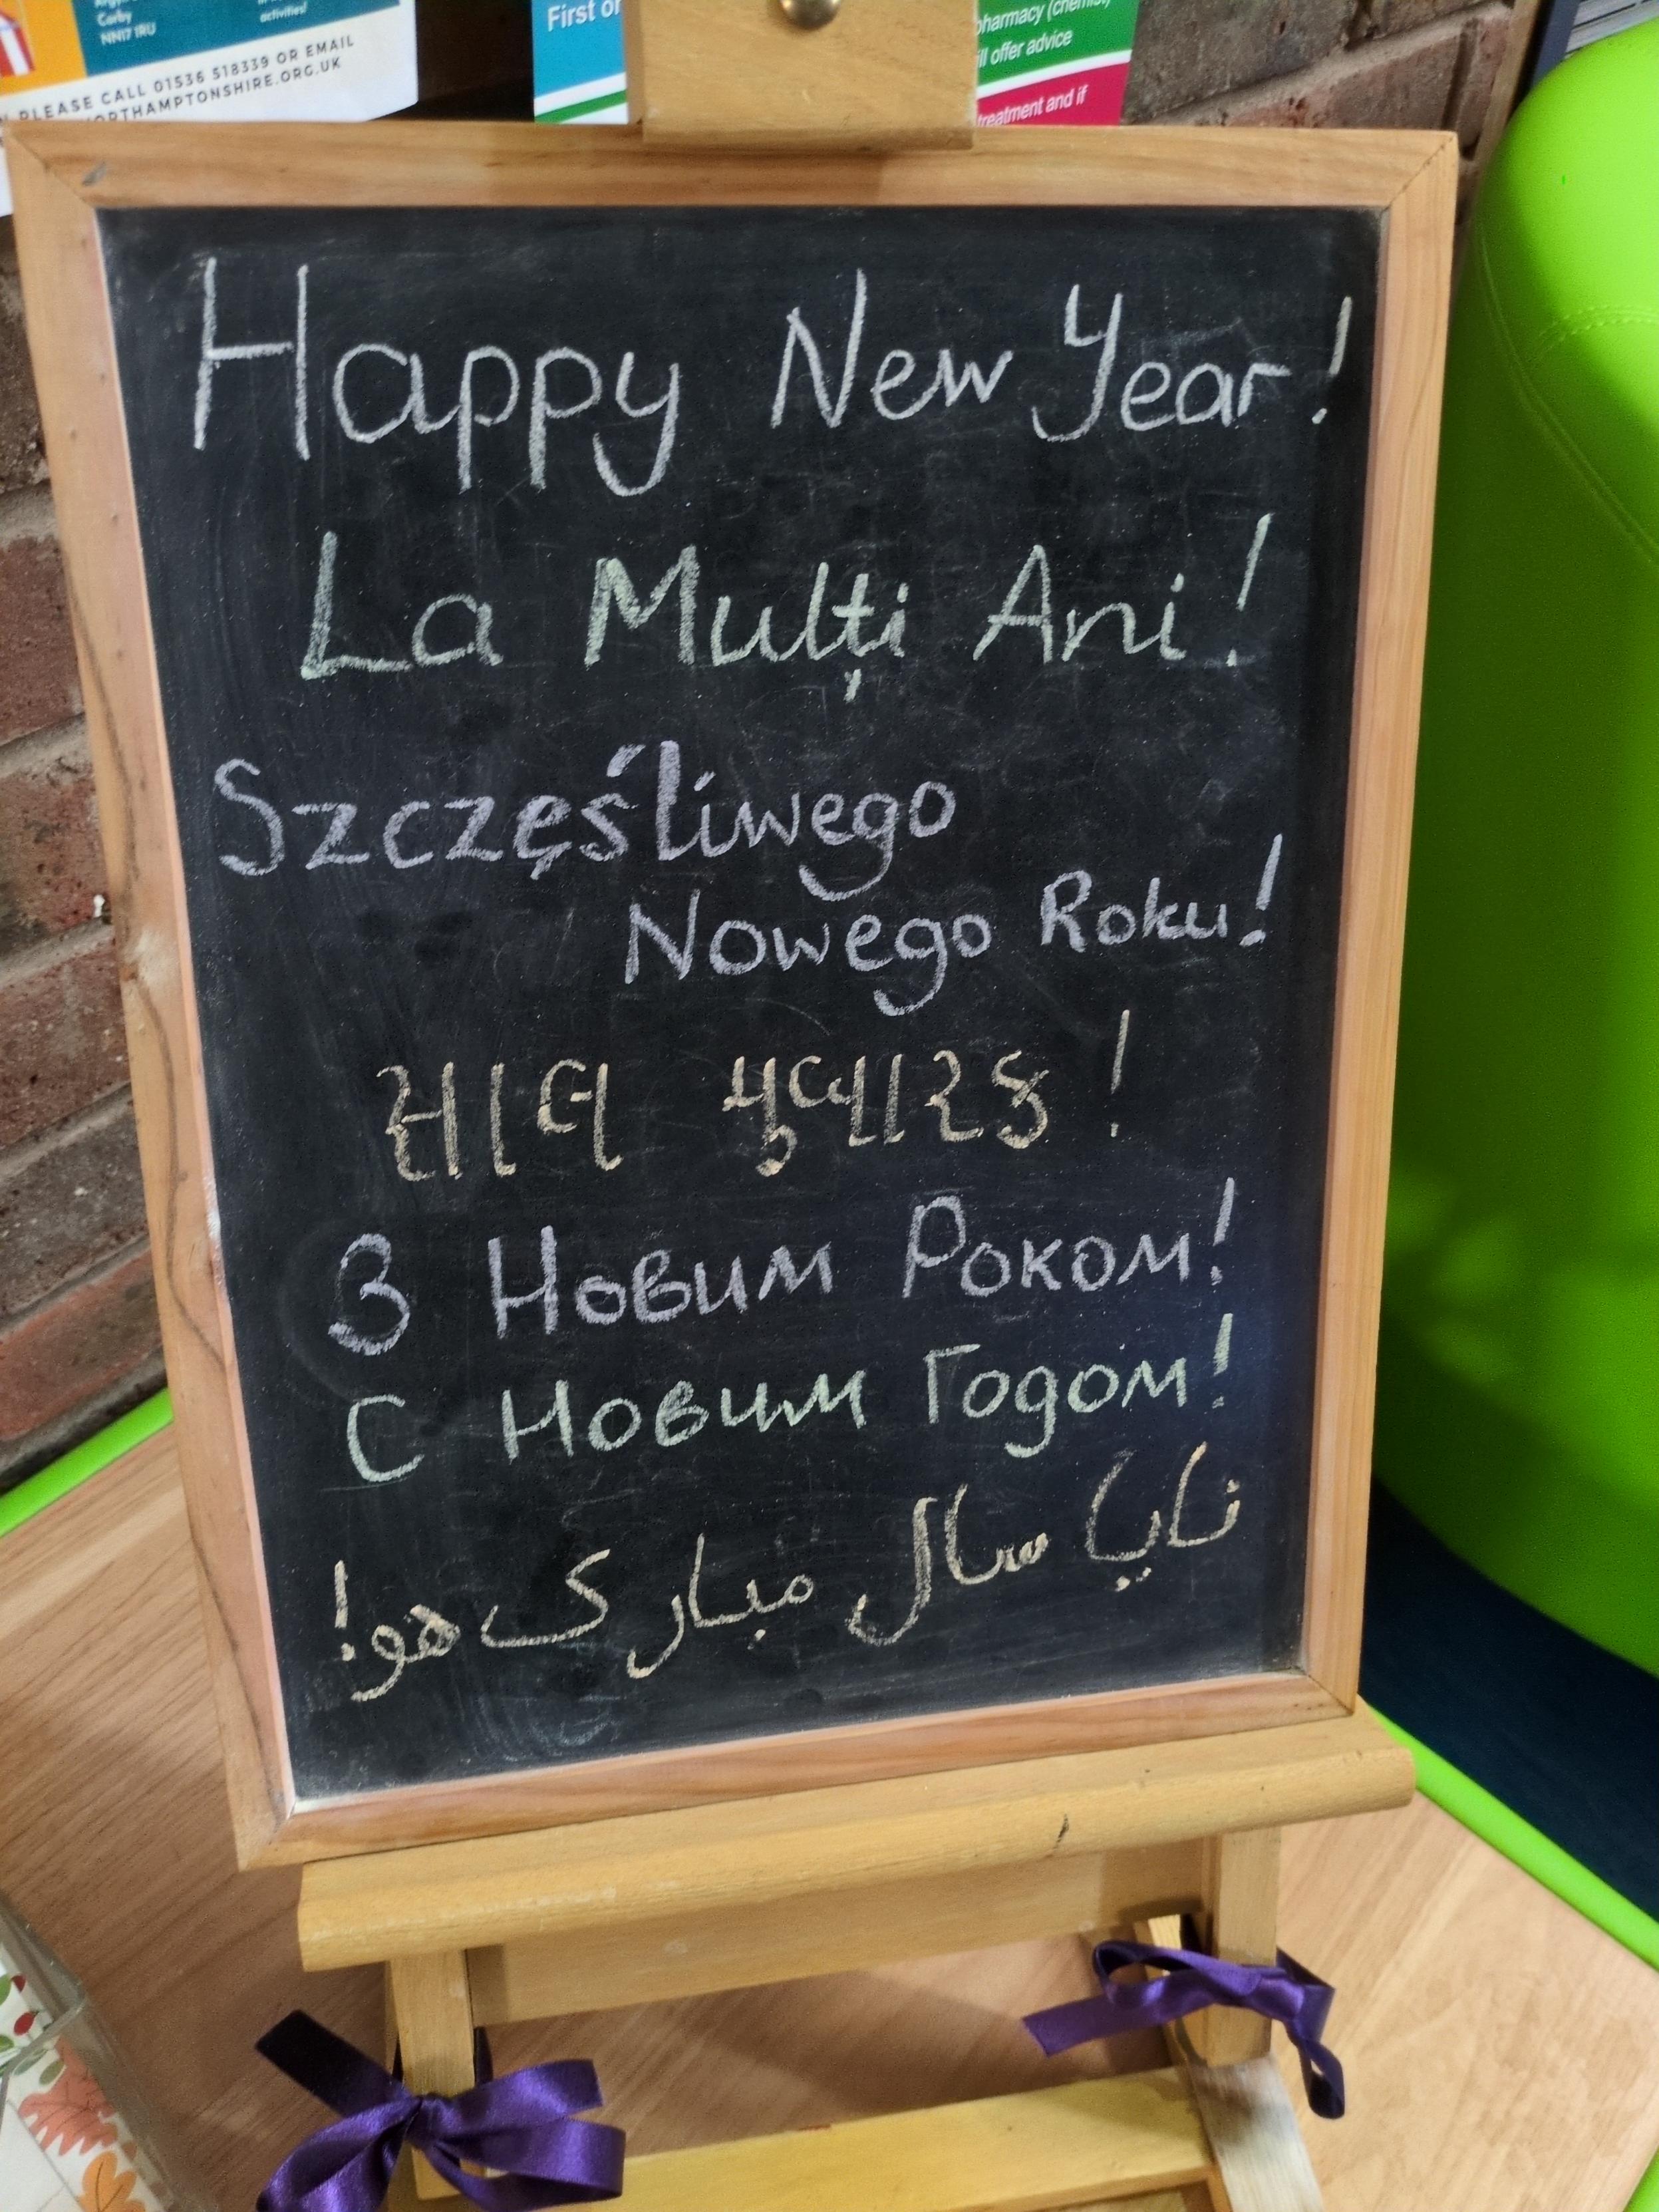 Corby
NN17 1RU
activities!
PLEASE CALL 01536 518339 OR EMAIL
First
pharmacy (chemist)
offer advice
treatment and if
Happy New Year!
La Mulți Ani!
Szczęśliwego
Nowego Roku!
સાલ મુબારક !
З Новим Роком!
С Новим Годом!
نایا سال مبارک هو!